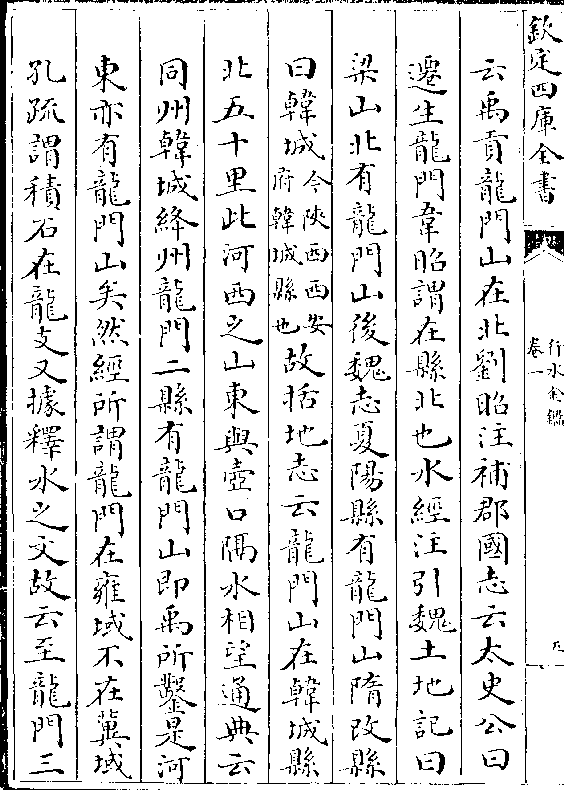 欽定四庫全書
行水金鑑
卷一
云禹貢龍門山在北劉昭注補郡國志云太史公曰
遷生龍門韋昭謂在縣北也水經注引魏土地記曰
梁山北有龍門山後魏志夏陽縣有龍門山隋改縣
曰韓城今陜西西安府韓城縣也故括地志云龍門山在韓城縣
北五十里此河西之山東與壺口隔水相望通典云
同州韓城絳州龍門二縣有龍門山即禹所鑿是河
東亦有龍門山矣然經所謂龍門在雍域不在冀域
孔疏謂積石在龍支又據釋水之文故云至龍門三